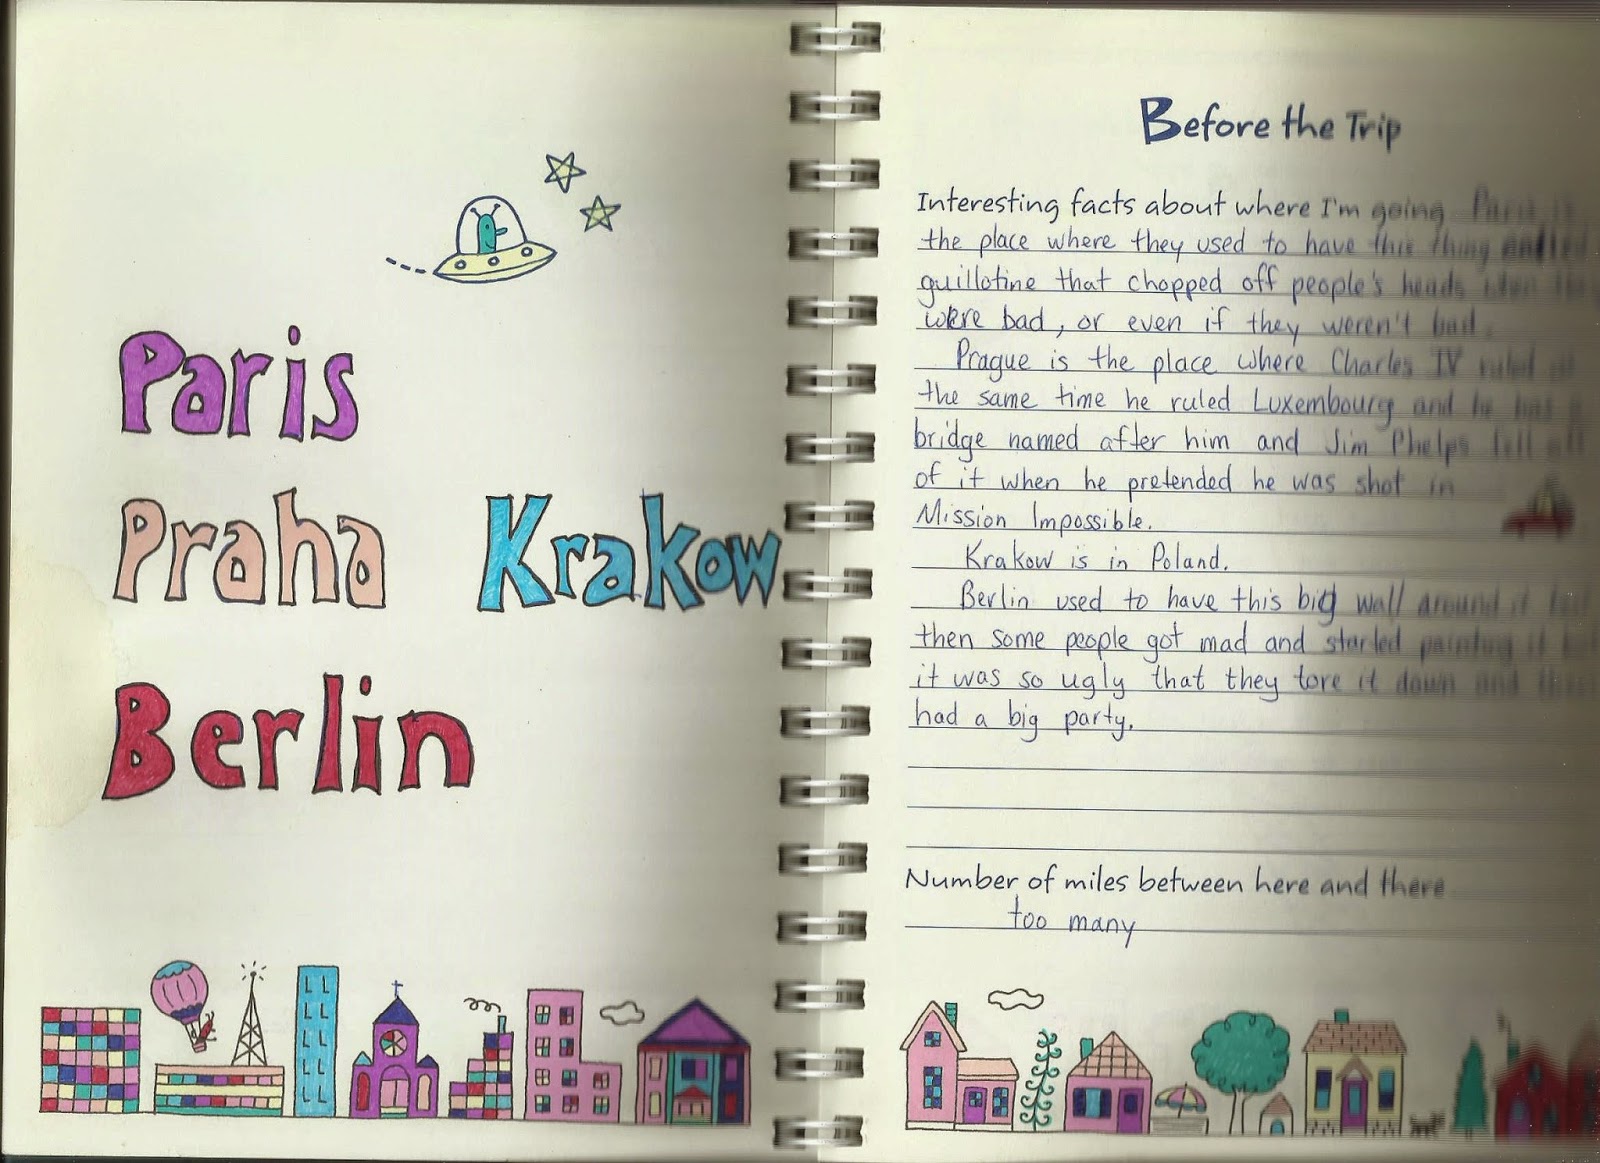 Paris
Praha Krakow
Berlin
Before the Trip
Interesting facts about where I'm going Paris is
the place where they used to have this thing called
guillotine that chopped off people's heads when they
were bad, or even if they weren't bad.
Prague is the place where Charles IV ruled at
the same time he ruled Luxembourg and he has a
bridge named after him and Jim Phelps fell off
of it when he pretended he was shot in
Mission Impossible.
Krakow is in Poland.
Berlin used to have this big wall around it but
then some people got mad and started painting it but
it was so ugly that they tore it down and then
had a big party.
Number of miles between here and there
too many